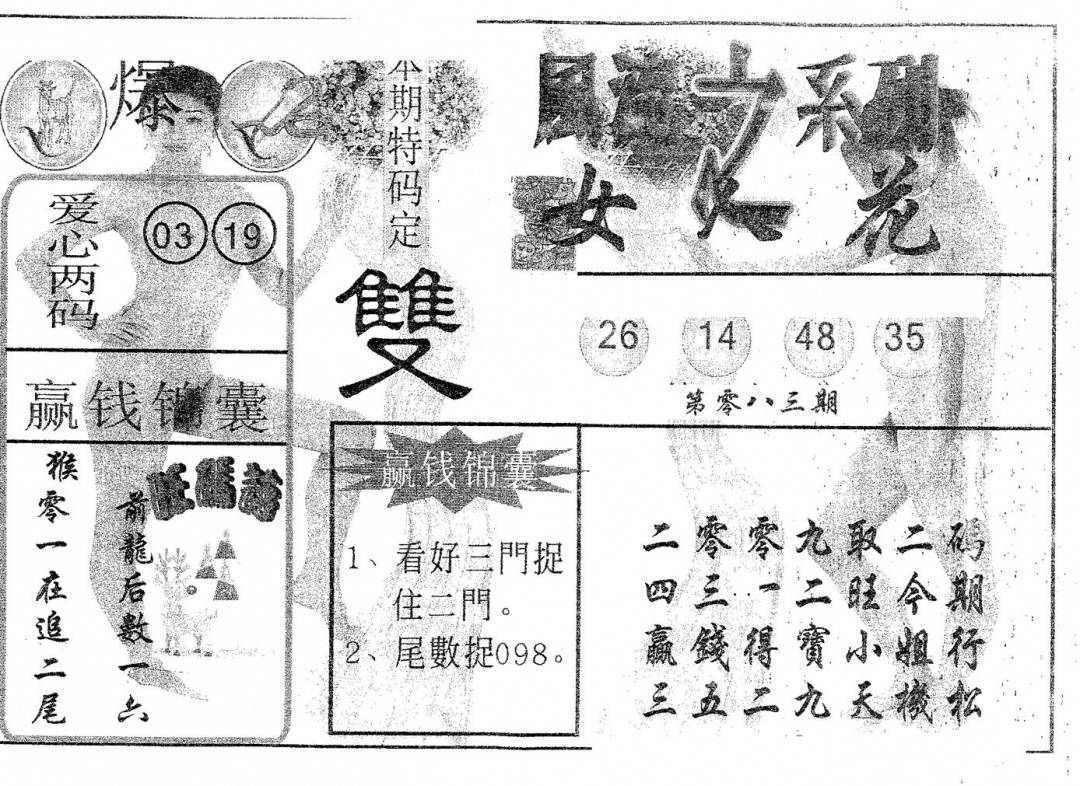 爆
爱心两码
03 19
赢钱锦囊
猴零一在追二尾
旺碼詩
前龍后数一六
本期特码定
雙
赢钱锦囊
1、看好三門捉
住二門。
2、尾數捉098。
之系列
女人花
26 14 48 35
第零八三期
二零零九取二码
四三一二旺今期
贏錢得寶小姐行
三五二九天機松